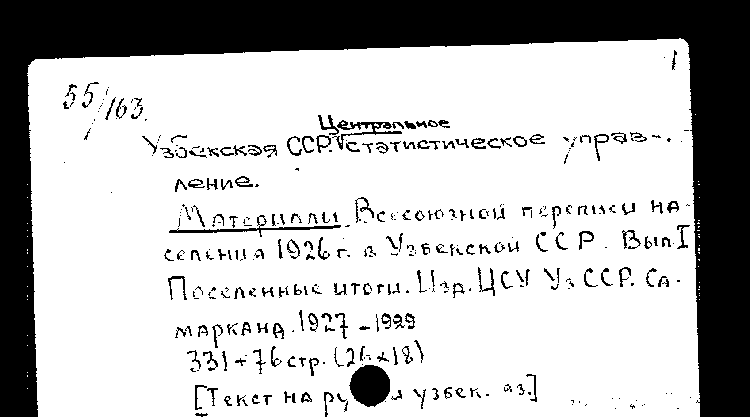 1
55/163.
Центральное
Узбекская ССР. статистическое управ-
ление.
Материалы Всесоюзной переписи на-
селения 1926 г. в Узбекской ССР. Вып I
Поселенные итоги. Изд. ЦСУ Уз ССР. Са-
марканд. 1927 - 1929
331 + 76 стр. (26 x 18)
[Текст на узбек. яз.]